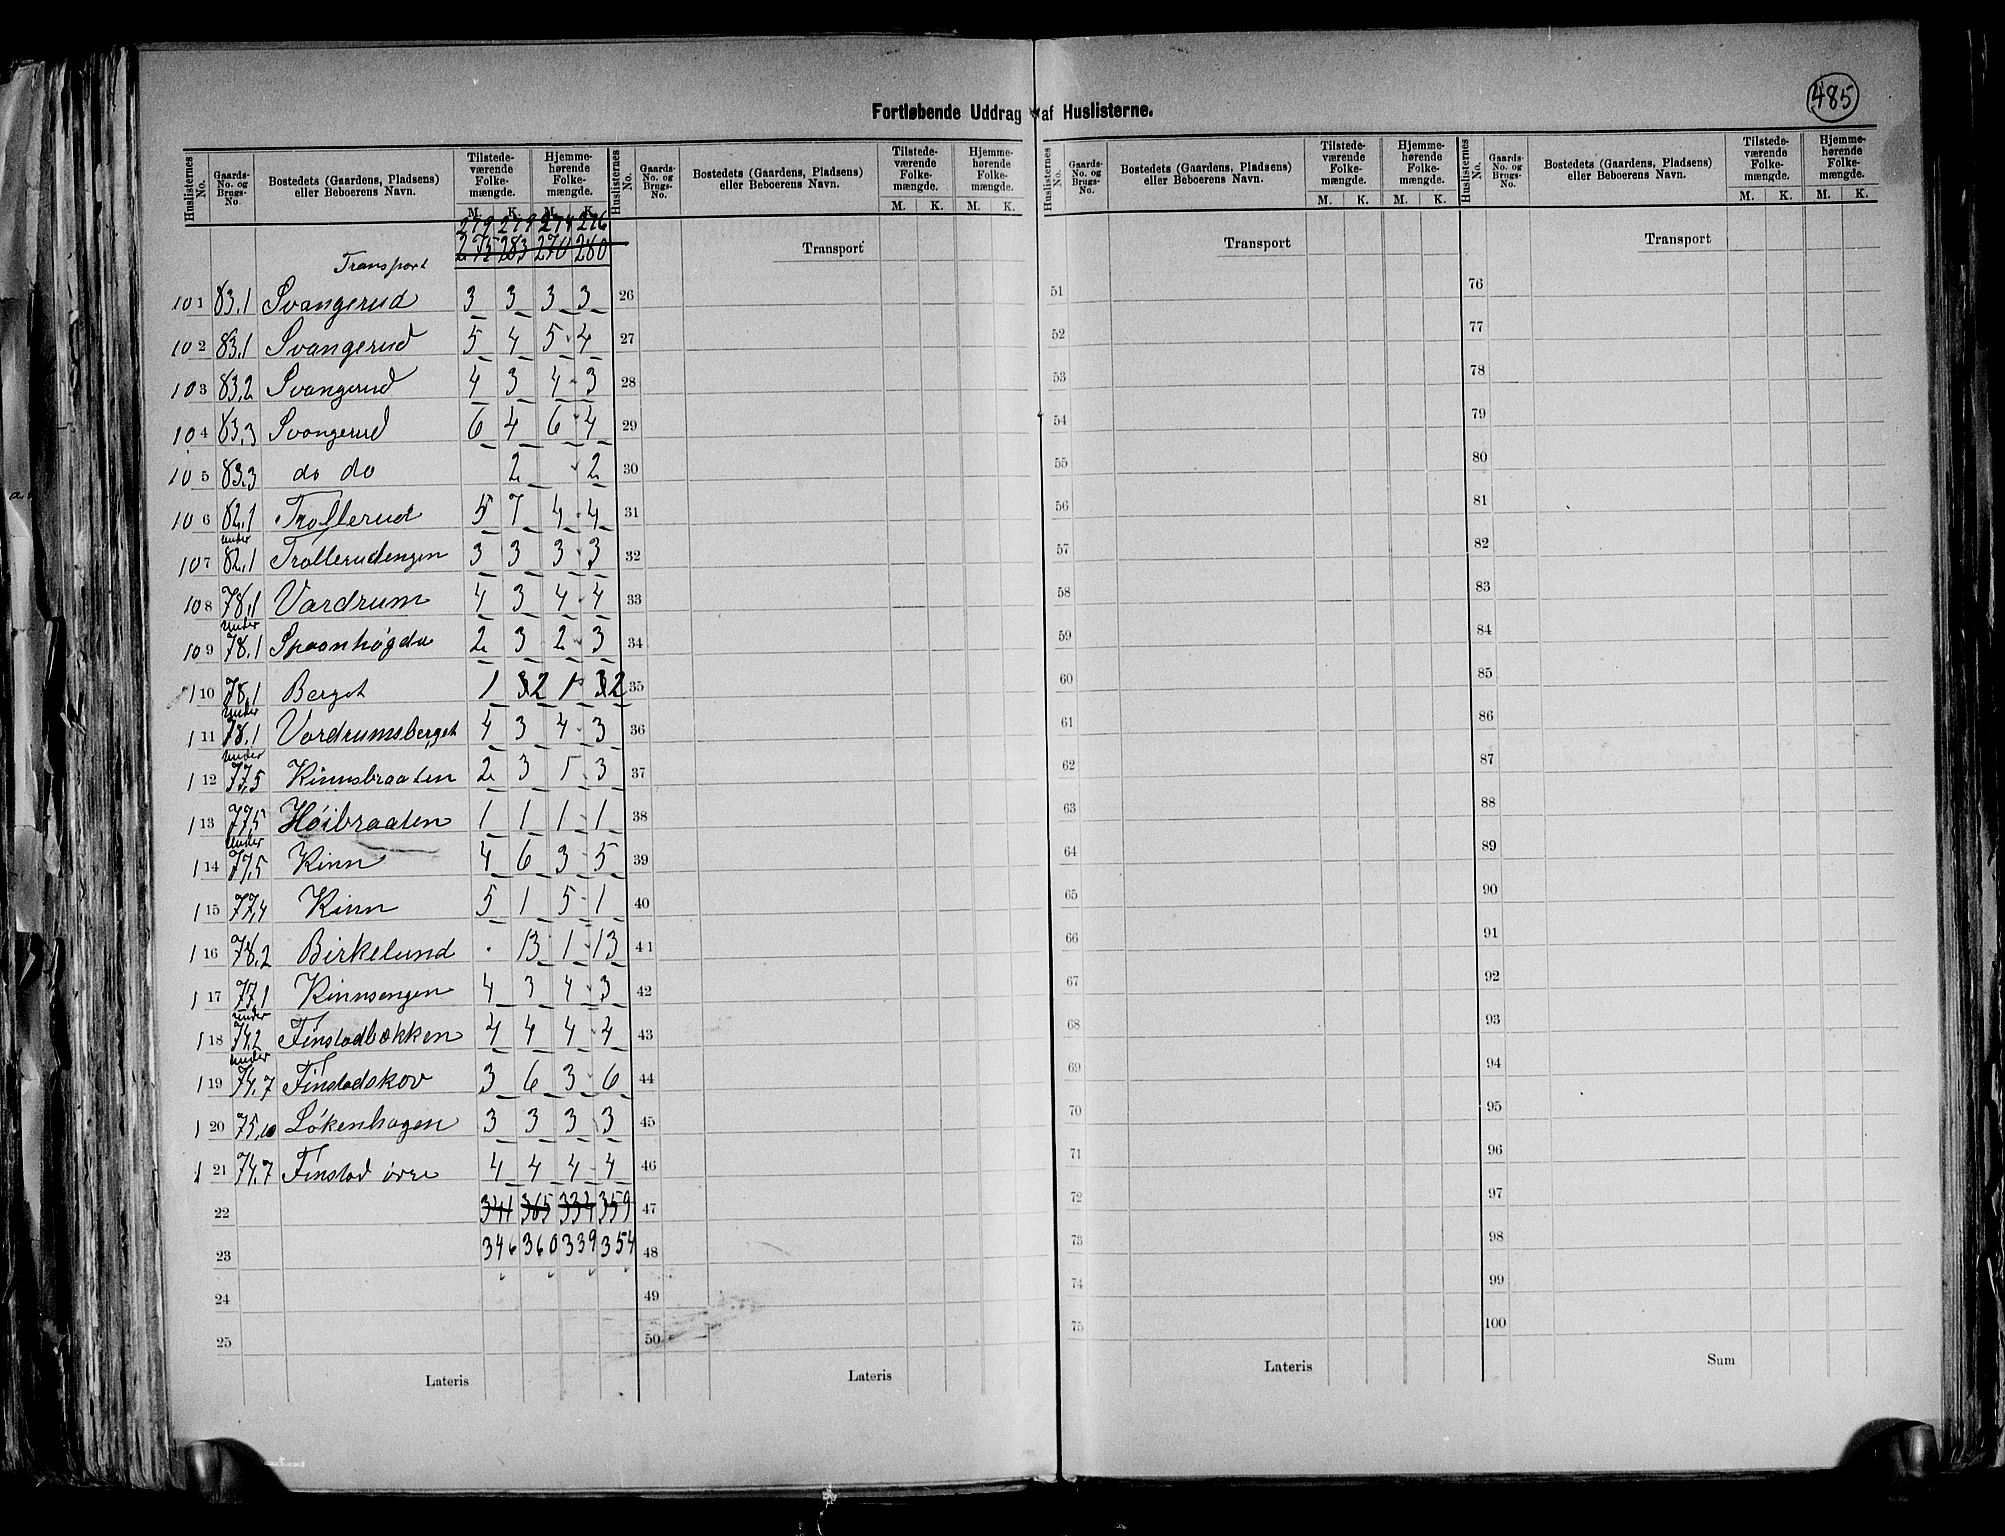 485
Fortløbende Uddrag af Huslisterne.
Huslisternes No. Gaards-No. og Brugs-No. Bostedets (Gaardens, Pladsens) eller Beboerens Navn. Tilstede-værende Folke-mængde. M. K. Hjemme-hørende Folke-mængde. M. K.
Huslisternes No. Gaards-No. og Brugs-No. Bostedets (Gaardens, Pladsens) eller Beboerens Navn. Tilstede-værende Folke-mængde. M. K. Hjemme-hørende Folke-mængde. M. K.
Huslisternes No. Gaards-No. og Brugs-No. Bostedets (Gaardens, Pladsens) eller Beboerens Navn. Tilstede-værende Folke-mængde. M. K. Hjemme-hørende Folke-mængde. M. K.
Huslisternes No. Gaards-No. og Brugs-No. Bostedets (Gaardens, Pladsens) eller Beboerens Navn. Tilstede-værende Folke-mængde. M. K. Hjemme-hørende Folke-mængde. M. K.
279 279 274 276
Transport 275 283 270 280
101 83,1 Svangerud 3 3 3 3
102 83,1 Svangerud 5 4 5 4
103 83,2 Svangerud 4 3 4 3
104 83,3 Svangerud 6 4 6 4
105 83,3 do do 2 2
106 82,1 Trollerud 5 7 4 4
107 under 82,1 Trollerudengen 3 3 3 3
108 78,1 Vardrum 4 3 4 4
109 under 78,1 Spaanhøgda 2 3 2 3
110 78,1 Berget 1 32 1 32
111 under 78,1 Vardrumsberget 4 3 4 3
112 under 77,5 Kinnsbraaten 2 3 1 3
113 77,5 Høibraaten 1 1 1 1
114 under 77,5 Kinn 4 6 3 5
115 77,4 Kinn 5 1 5 1
116 78,2 Birkelund . 13 1 13
117 77,1 Kinnsengen 4 3 4 3
118 under 74,2 Finstadbækken 4 4 4 4
119 under 74,7 Finstadskov 3 6 3 6
120 75,10 Løkenhagen 3 3 3 3
121 74,7 Finstad øvre 4 4 4 4
22 341 365 334 359
23 346 360 339 354
24
25
Lateris
Transport
26
27
28
29
30
31
32
33
34
35
36
37
38
39
40
41
42
43
44
45
46
47
48
49
50
Lateris
Transport
51
52
53
54
55
56
57
58
59
60
61
62
63
64
65
66
67
68
69
70
71
72
73
74
75
Lateris
Transport
76
77
78
79
80
81
82
83
84
85
86
87
88
89
90
91
92
93
94
95
96
97
98
99
100
Sum